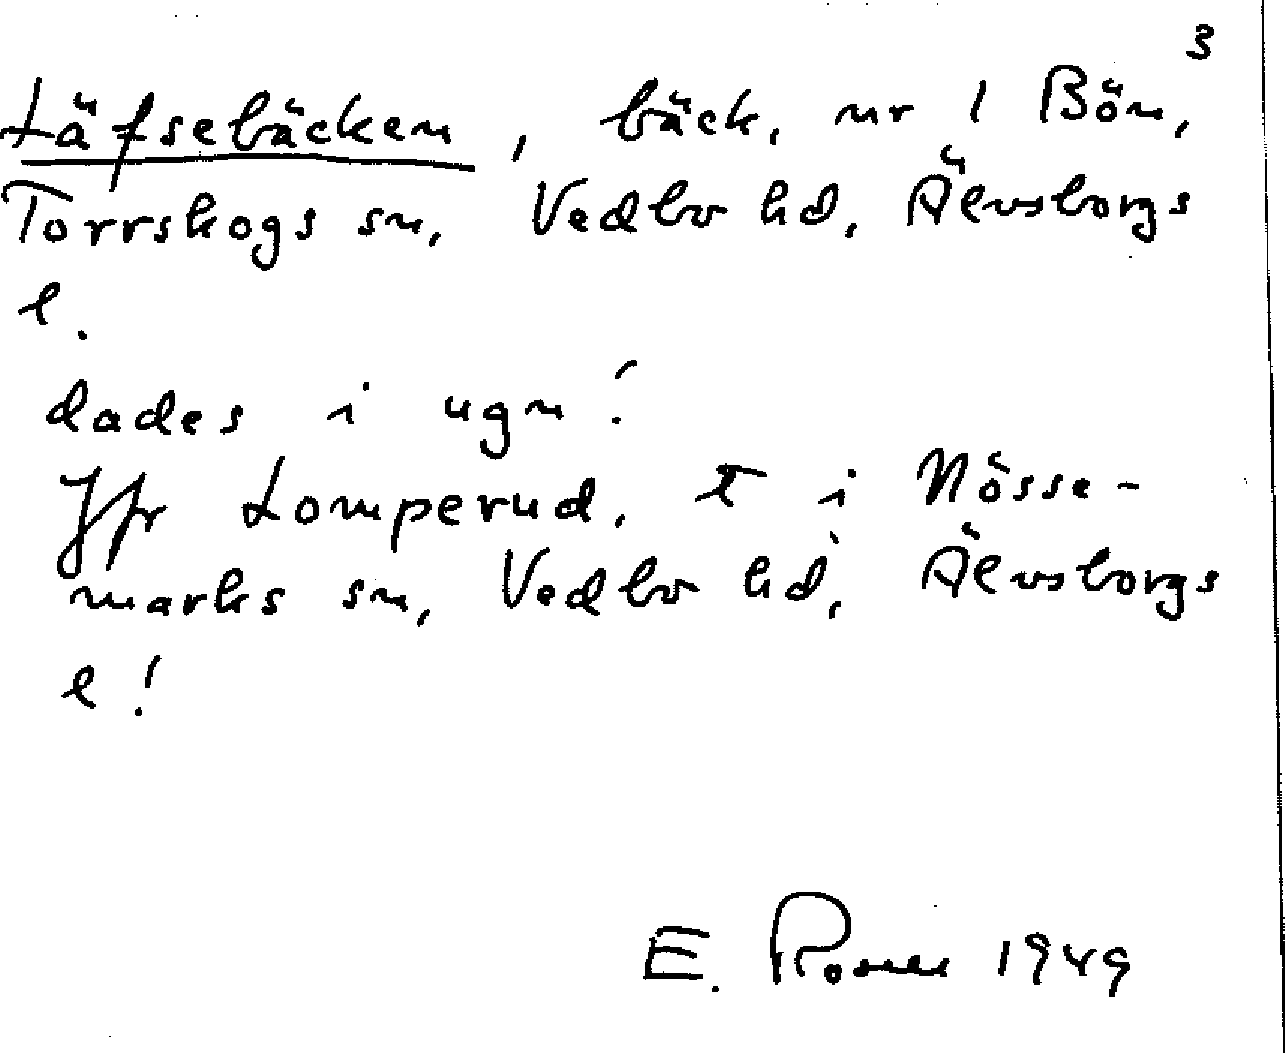 3
Läfsebäcken, bäck, nr 1 Bön,
Torrskogs sn, Vedbo hd, Älvsborgs
l.
dades i ugn!
Jfr Lomperud, t i Nösse-
marks sn, Vedbo hd, Älvsborgs
l!
E. Rosell 1949